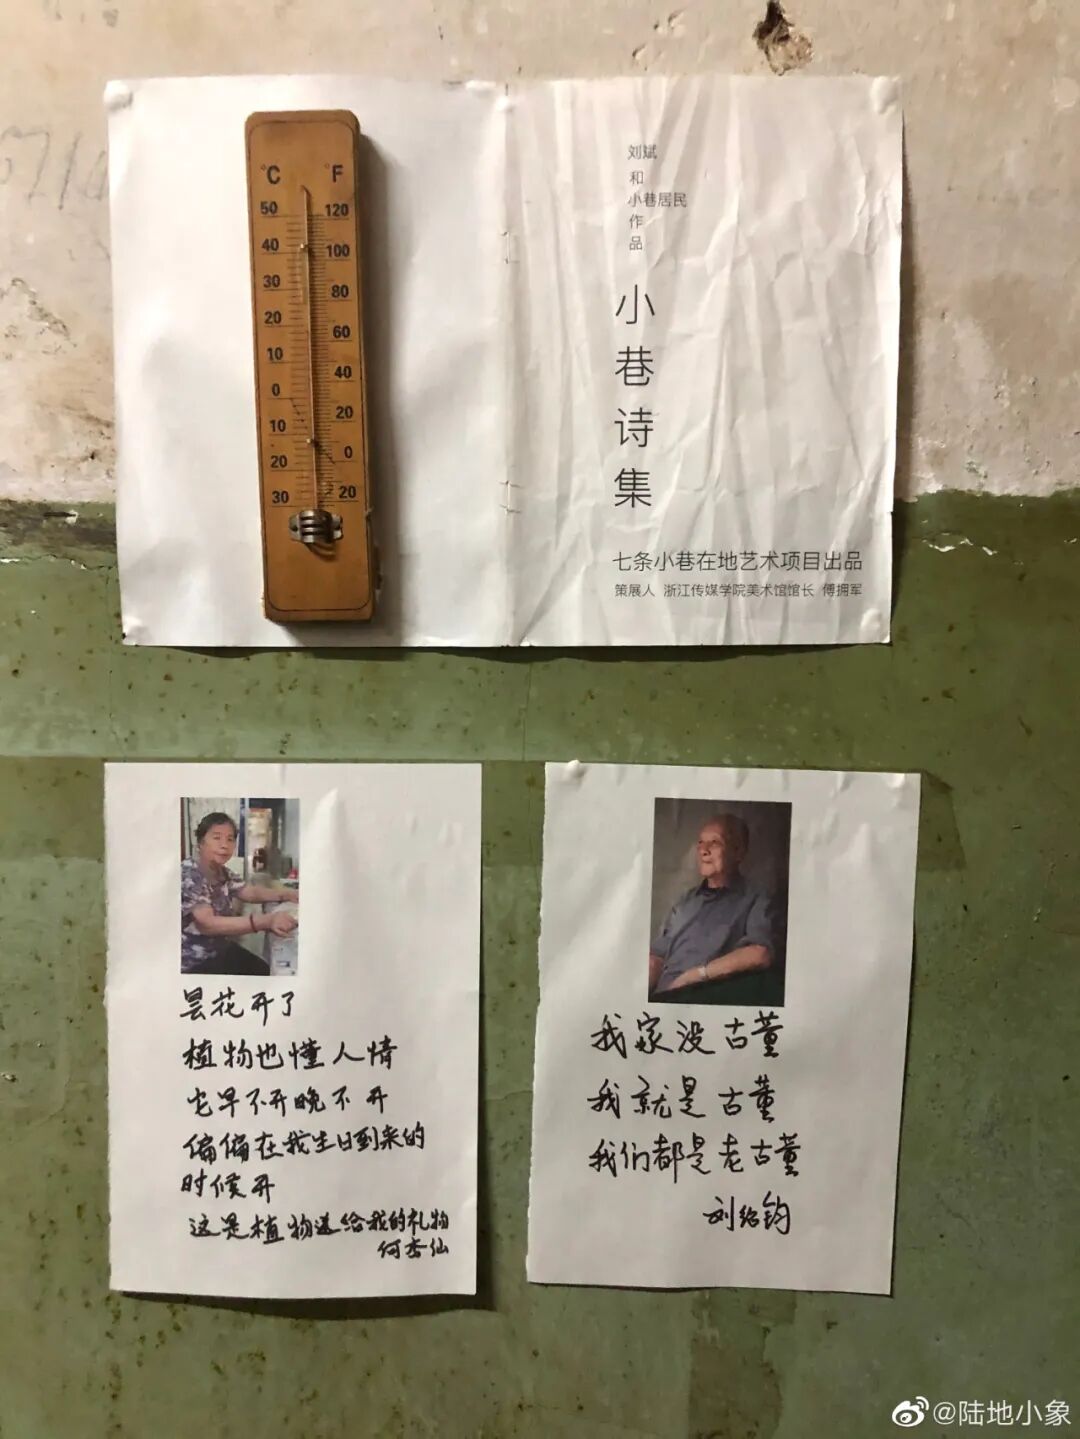 °C °F
50 120
40 100
30 80
20 60
10 40
0 20
10 0
20 20
30
刘斌
和
小巷居民
作
品
小
巷
诗
集
七条小巷在地艺术项目出品
策展人 浙江传媒学院美术馆馆长 傅拥军
昙花开了
植物也懂人情
它早不开晚不开
偏偏在我生日到来的
时候开
这是植物送给我的礼物
何杏仙
我家没古董
我就是古董
我们都是老古董
刘绍钧
@陆地小象